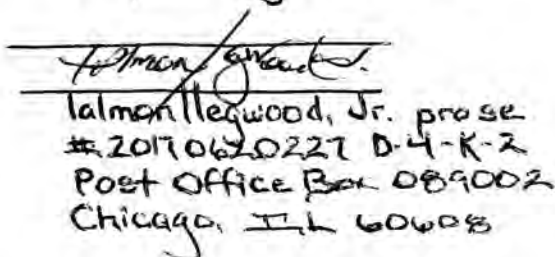 Talmon Hegwood, Jr. pro se
#20170620227 D-4-K-2
Post Office Box 089002
Chicago, IL 60608